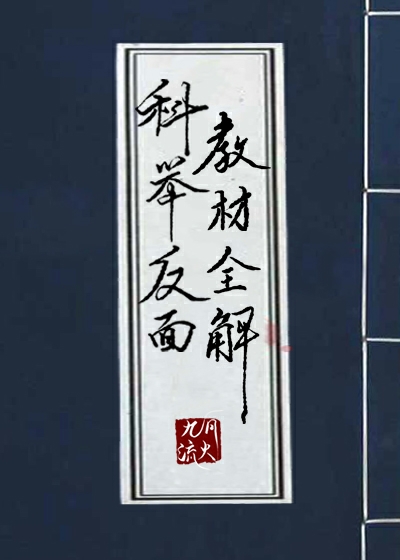 科举反面
教材全解
九月
流火